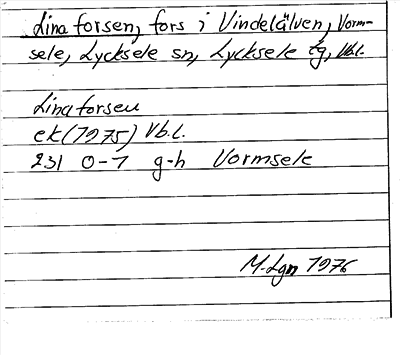 Lina forsen, fors i Vindelälven, Vorm-
sele, Lycksele sn, Lycksele lg, Vbl.
Linaforsen
ek (1975) Vb.l.
23I 0-1 g-h Vormsele
M. Lgn 1976